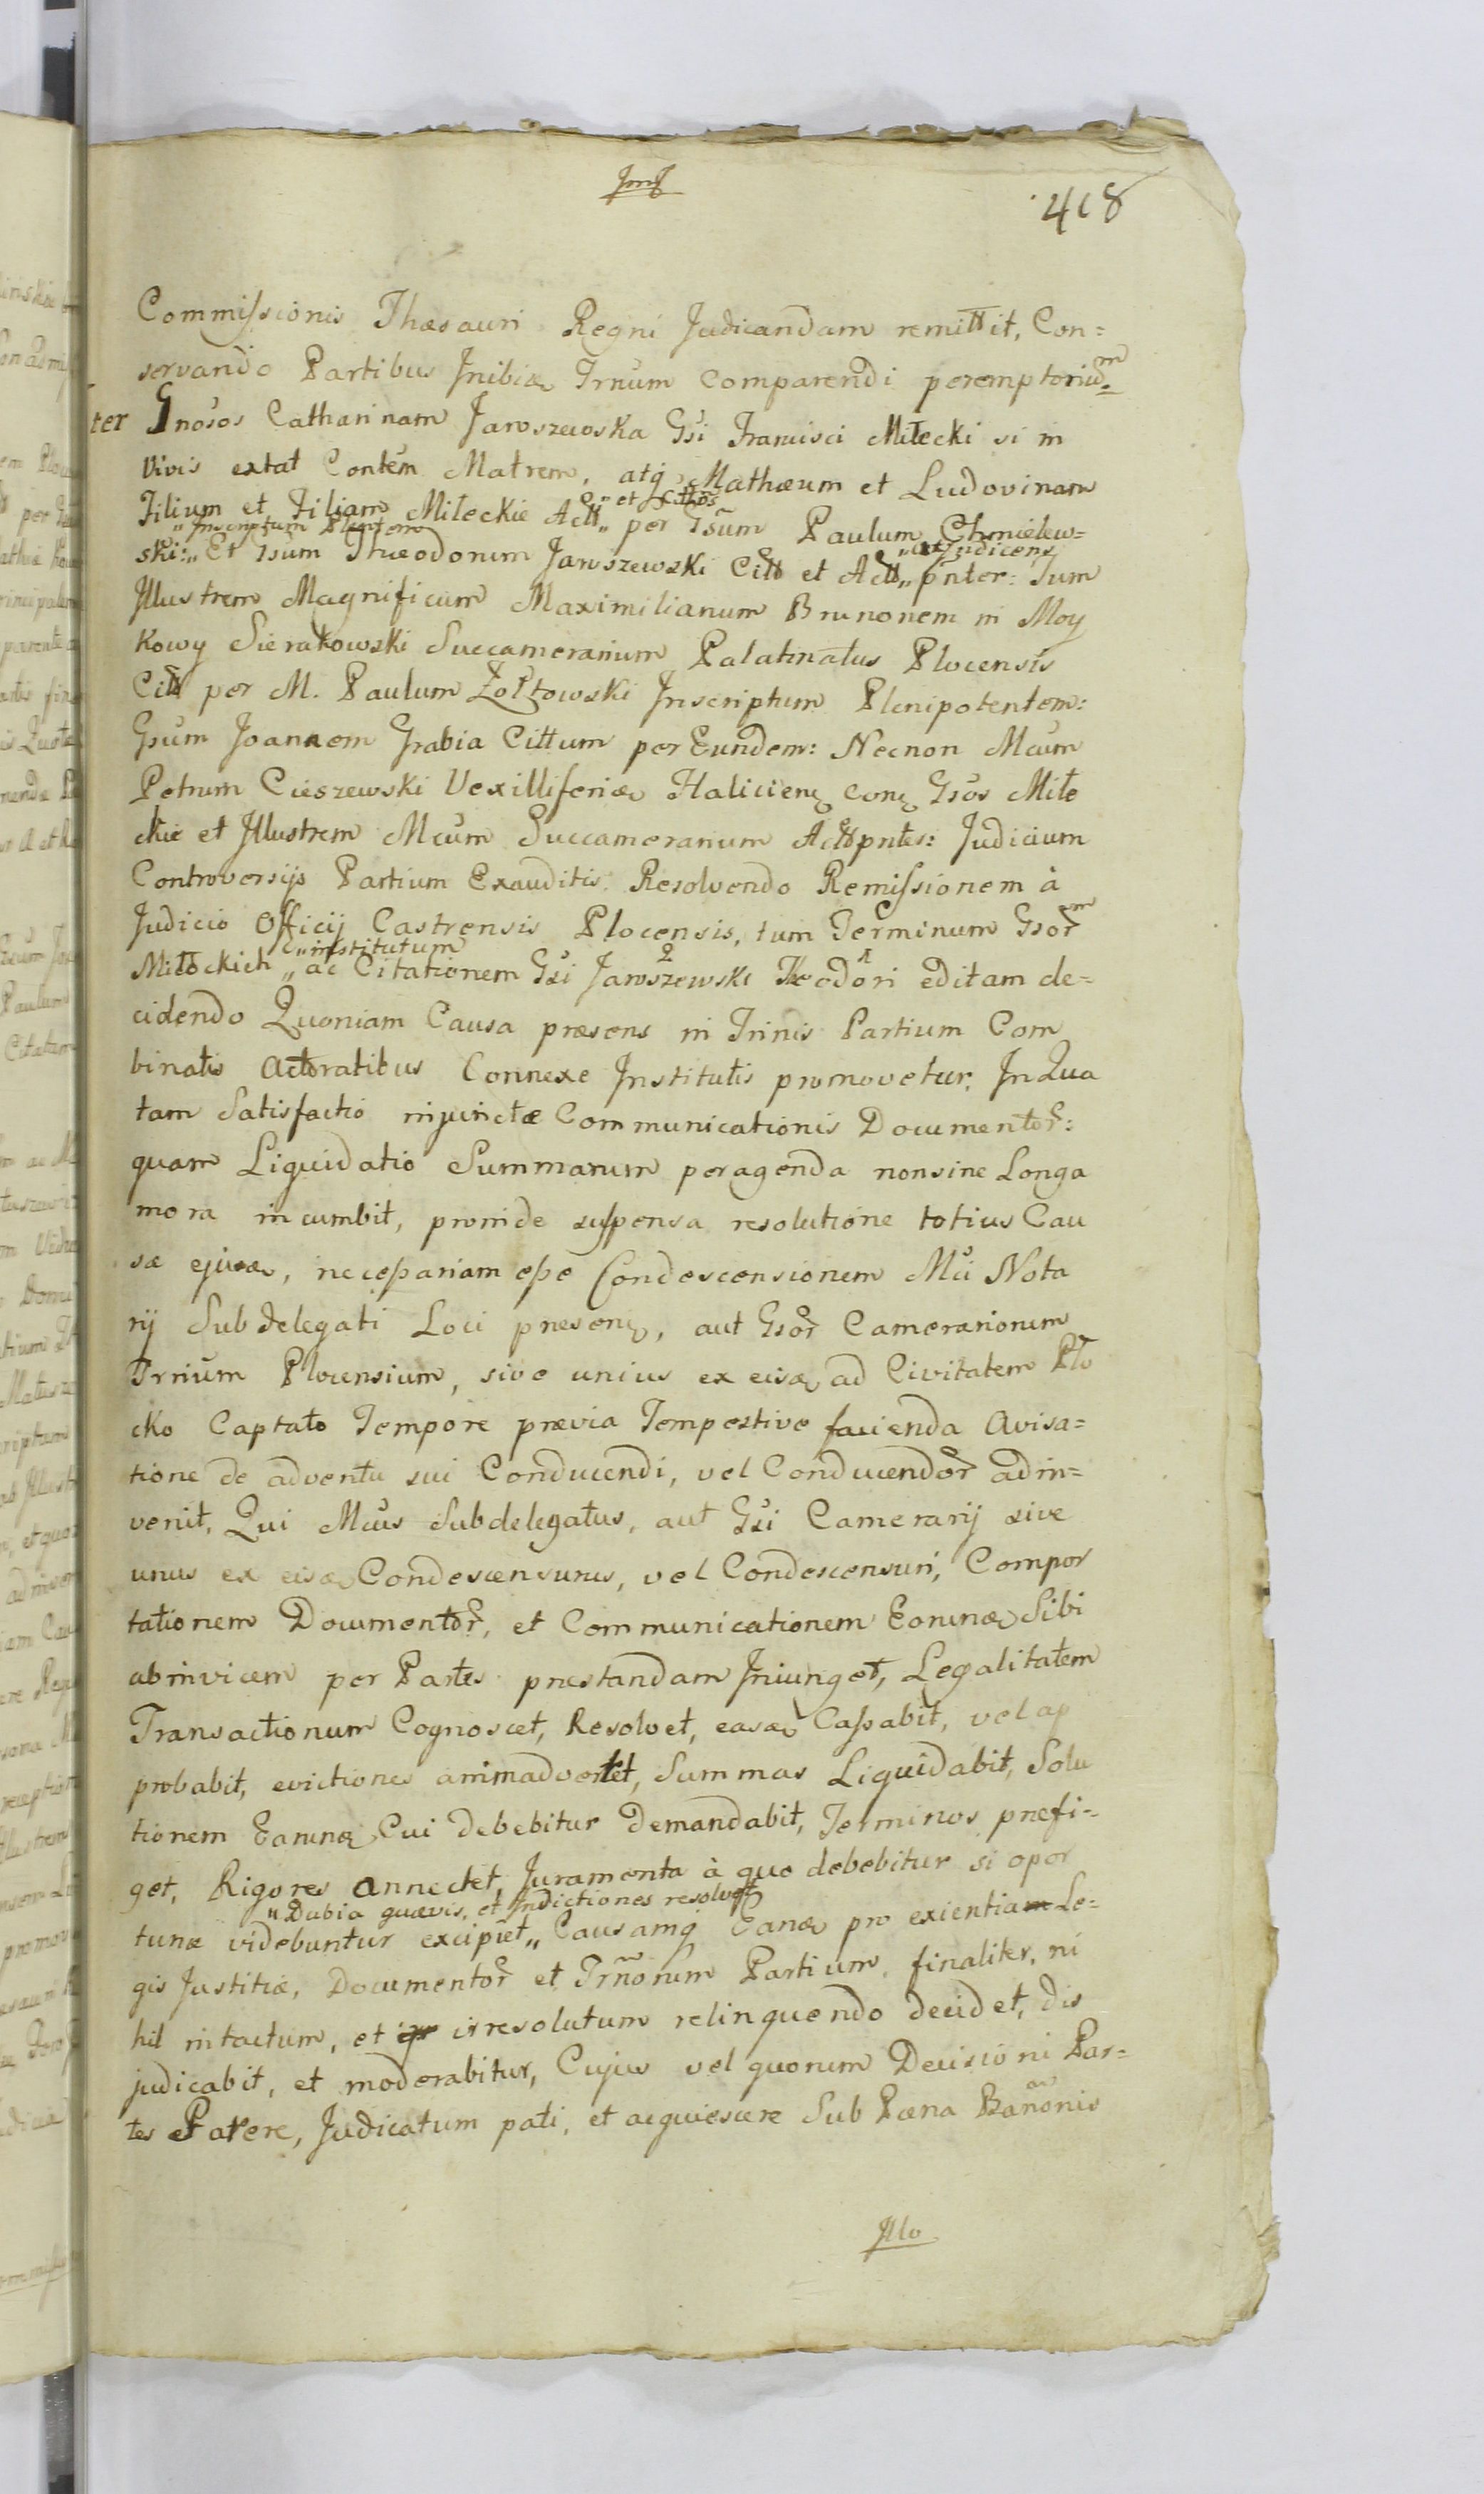 418
Commissionis Thesauri Regni Judicandam remittit, Con=
servando Partibus Inibiq Trnum comparendi peremptoriu=m
ter Gnosos Catharinam Jaroszewska Gsi Francisci Miłecki si in
vivis extat Contem Matrem, atq Mathæum et Ludovinam
Filium et Filiam Miłeckie Actt „o et Citthos per Gsum Paulum Chmielew=
ski: „Inscriptum Plentem Et Gsum Theodorum Jaroszewski Citt et Actt „et Judicens pnter: Tum
Illustrem Magnificum Maximilianum Brunonem in Moy
kowy Sierakowski Succamerarium Palatinatus Plocensis
Citt per M. Paulum Żołtowski Inscriptum Plenipotentem:
Gsum Joannem Grabia Cittum per Eundem: Necnon Mcum
Petrum Cieszewski Vexilliferiæ Halicien con Gsos Miłe
ckie et Illustrem Mcum Succamerarium Actt pntes: Judicium
Controversijs Partium Exauditis. Resolvendo Remissionem à
Judicio Officij Castrensis Plocensis, tum Terminum Gsorm
Miłockich „institutum ac Citationem Gsi Jaroszewski 2 Teodori 1 editam de=
cidendo Quoniam Causa præsens in Trinis Partium Com
binatis Actoratibus Connexe Institutis promovetur, In Qua
tam Satisfactio injunctæ Communicationis Documentor:
quam Liquidatio Summarum peragenda non sine Longa
mora incumbit, proinde suspensa resolutione totius Cau
sæ ejusq, necessariam esse Condescensionem Mci Nota
rij Subdelegati Loci presen, aut Gsor Camerariorum
Trrium Plocensium, sive unius ex eisq ad Civitatem Pło
cko Captato Tempore prævia Tempestive facienda Avisa=
tione de adventu sui Conducendi, vel Conducendor adin=
venit, Qui Mcus Subdelegatus, aut Gsi Camerarij sive
unus ex eisq Condescensurus, vel Condescensuri, Compor
tationem Documentor, et Communicationem Eorunq Sibi
abinvicem per Partes prestandam Injunget, Legalitatem
Transactionum Cognoscet, Resolvet, easq Cassabit, vel ap
probabit, evictiones animadvertet, Summas Liquidabit, Solu
tionem Earunq Cui debebitur Demandabit, Terminos præfi=
get, Rigores annectet, Juramenta à quo debebitur si opor
tunæ videbuntur excipiet „Dubia quævis, et Indictiones resolvet „ Causamq Eanq pro exientia Le=
gis Justitiæ, Documentor et Trnorum Partium, finaliter, ni
hil intactum, et irresolutum relinquendo decidet, dis
judicabit, et moderabitur, Cujus vel quorum Decisioni Par=
tes Parere, Judicatum pati, et acquiescere Sub Pæna Bannonis
Illo